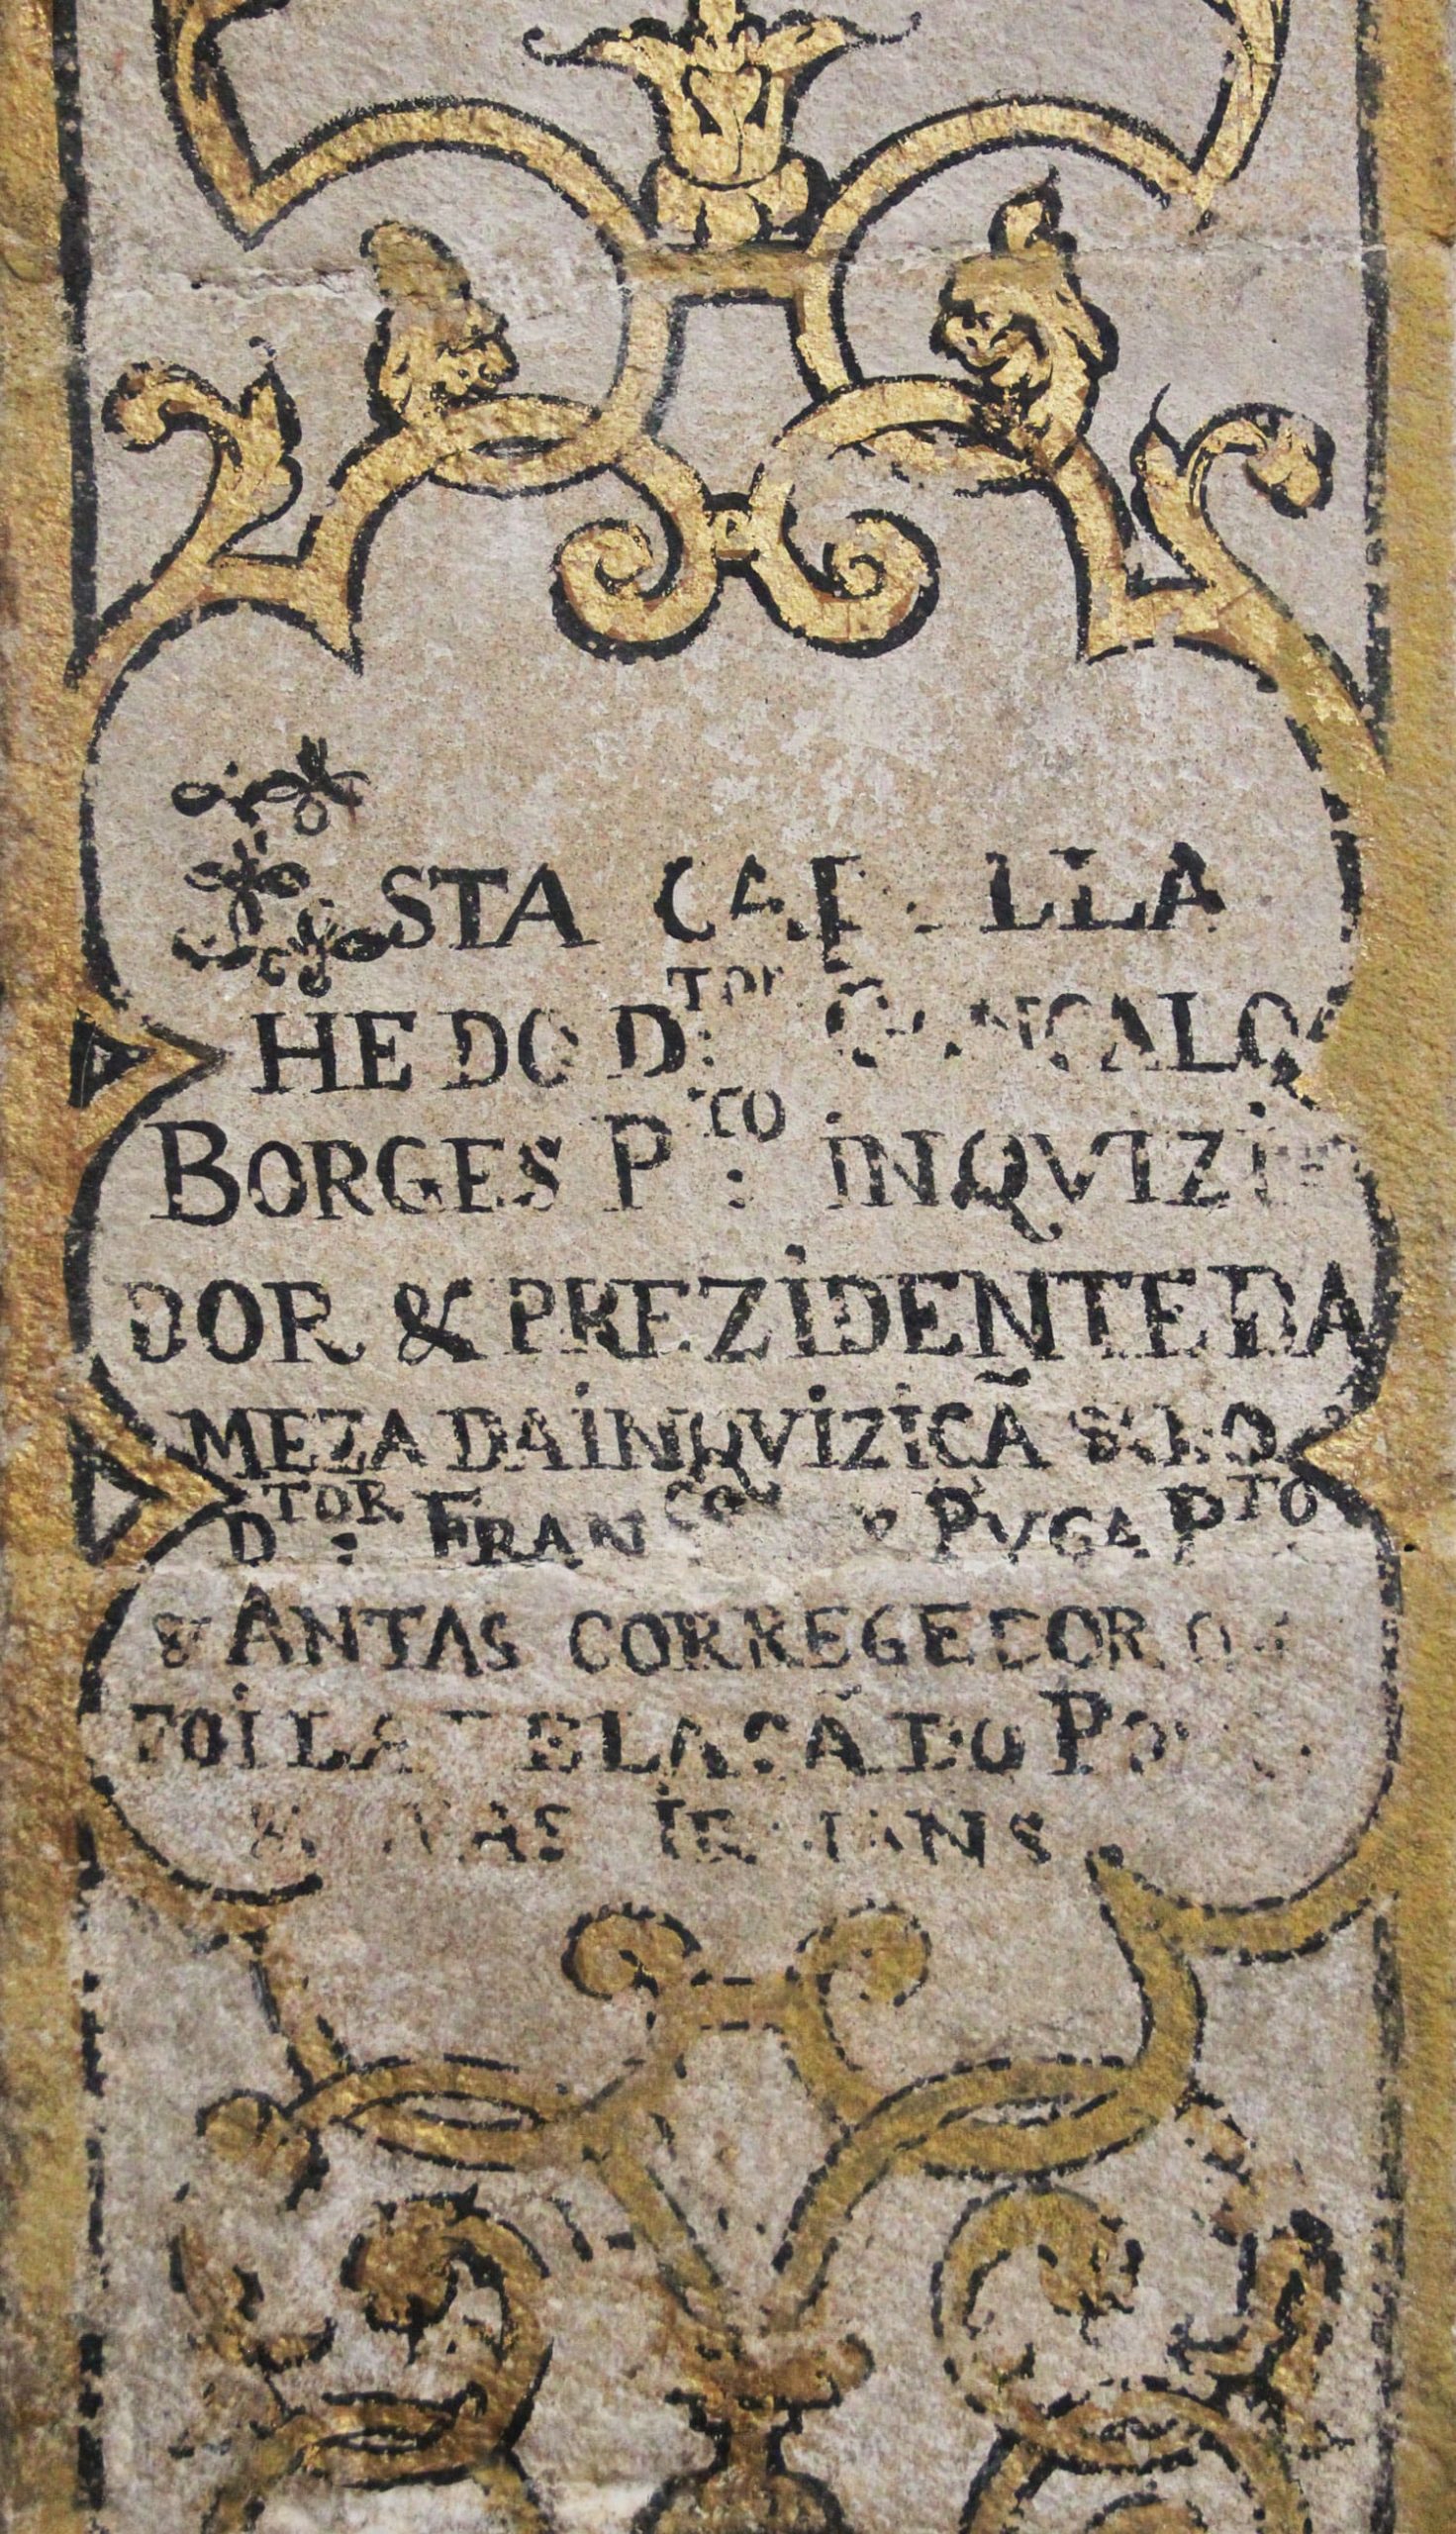 ESTA CAPELLA
HE DO D:TOR GONCALO
BORGES P:TO INQVIZI
DOR & PREZIDENTE DA
MEZA DA INQVIZICÃ
D:TOR FRANCO PVGA PTO
& ANTAS CORREGEDOR
FOI LA RELACÃ DO
&